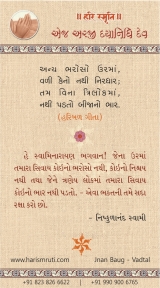 ॥ હરિ સ્મૃતિ ॥
એજ અરજી દયાનિધિ દેવ
અન્ય ભરોંસો ઉરમાં,
વળી કેનો નથી નિરધાર;
તમ વિના ત્રિલોકમાં,
નથી પડતો બીજાનો ભાર.
(હરિબળ ગીતા)
હે સ્વામિનારાયણ ભગવાન! જેના ઉરમાં
તમારા સિવાય કોઈનો ભરોસો નથી, કોઈનો નિશ્ચય
નથી તથા જેને ત્રણેય લોકમાં તમારા સિવાય
કોઈનો ભાર નથી પડતો. - એવા ભક્તની તમે સદા
રક્ષા કરો છો.
- નિષ્કુળાનંદ સ્વામી
www.harismruti.com
Jnan Baug - Vadtal
+91 823 826 6622
+91 990 900 6765